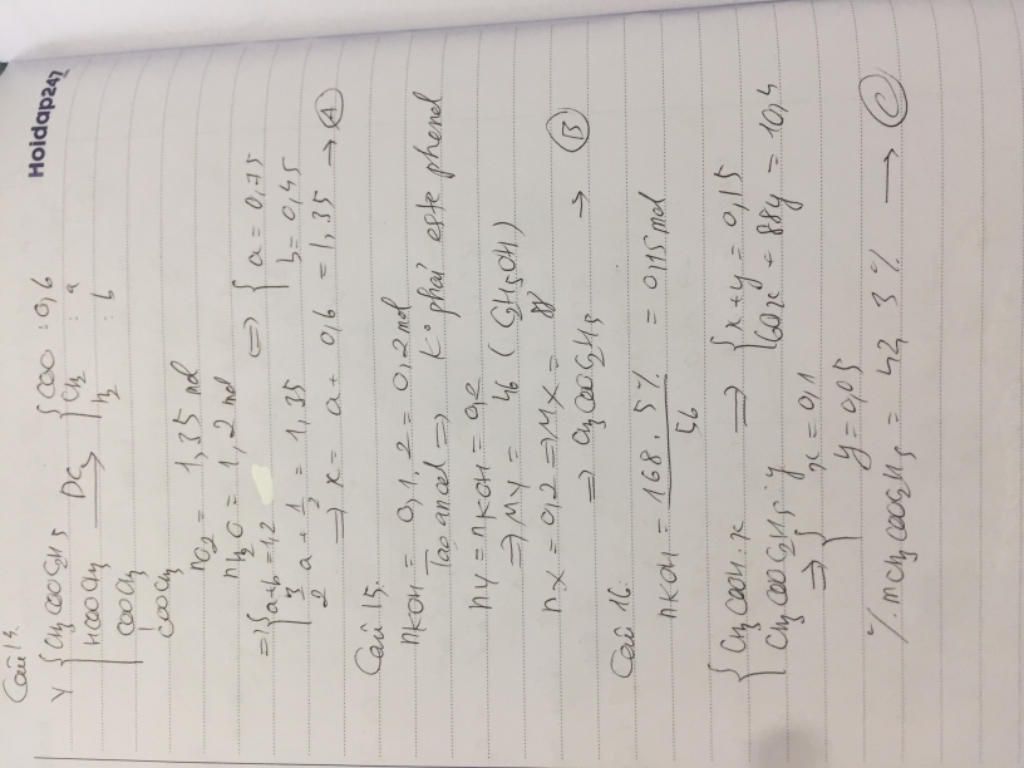 Hoidap247
Câu 14.
Y { CH3COOC2H5 ĐĐ→ { COO : 0,6
HCOOCH3 CH2 : a
COOCH3 H2 : b
COOCH3
nO2 = 1,35 mol
nH2O = 1,2 mol
=> { a+b = 1,2
3/2 a + 1/2 b = 1,35 <=> { a = 0,75
b = 0,45
=> x = a + 0,6 = 1,35 → (A)
Câu 15.
nKOH = 0,1.2 = 0,2 mol
Tạo ancol => K° phải este phenol
nY = nKOH = 0,2
=> MY = 46 (C2H5OH)
nX = 0,2 => MX = 88
=> CH3COOC2H5 → (B)
Câu 16.
nKOH = 168.5% / 56 = 0,15 mol
{ CH3COOH : x
CH3COOC2H5 : y => { x+y = 0,15
60x + 88y = 10,4
=> { x = 0,1
y = 0,05
%mCH3COOC2H5 = 42,3% → (C)